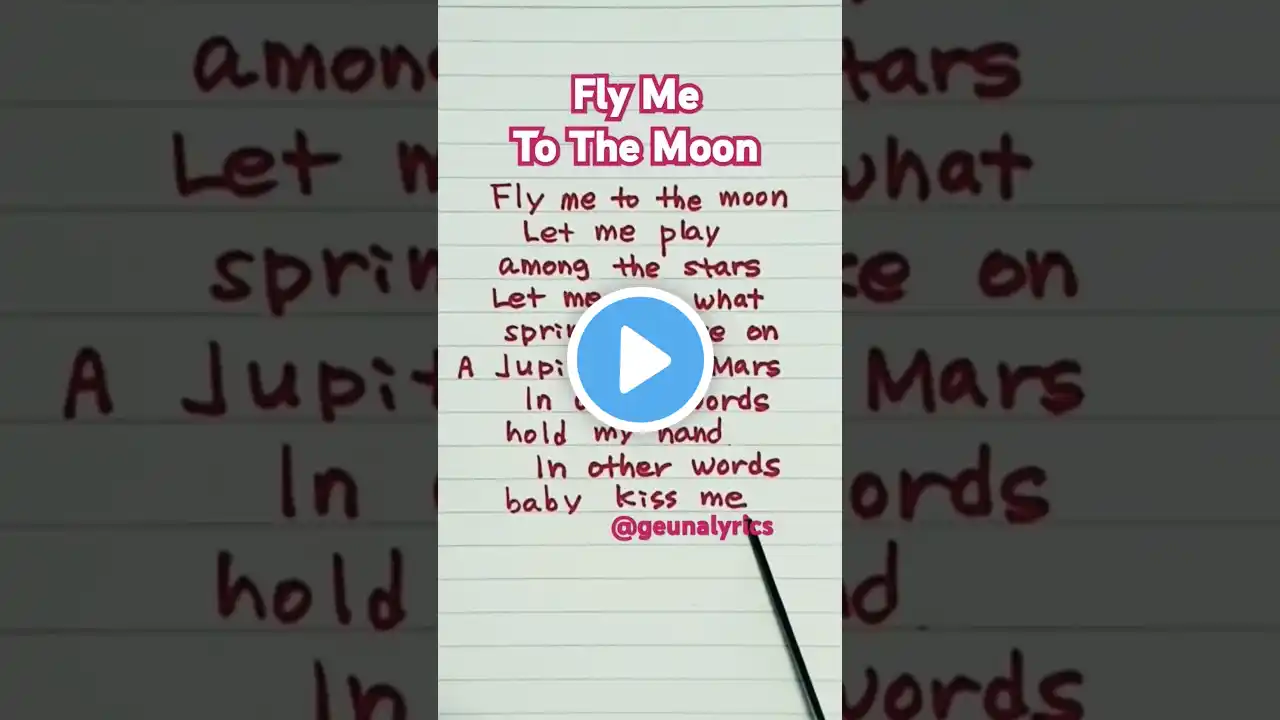 Fly Me
To The Moon
Fly me to the moon
Let me play
among the stars
Let me what
on
A Mars
In words
hold my hand
In other words
baby kiss me
@geunalyrics